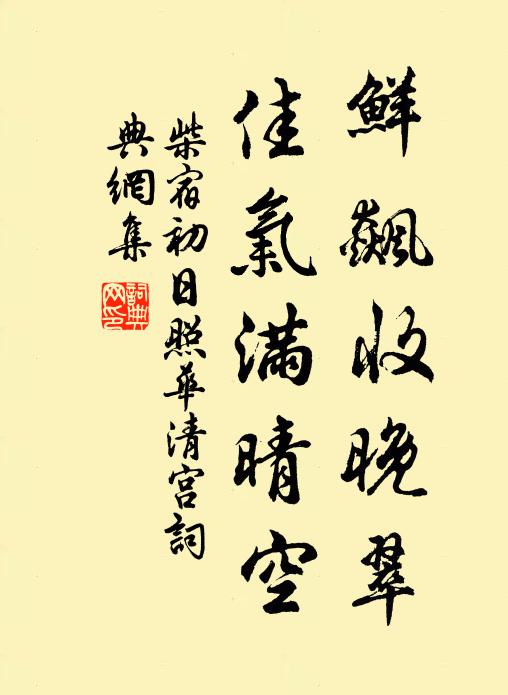 鮮飆收晚翠
佳氣滿晴空
柴宿初日照華清宮詞
典網集
詞典網印